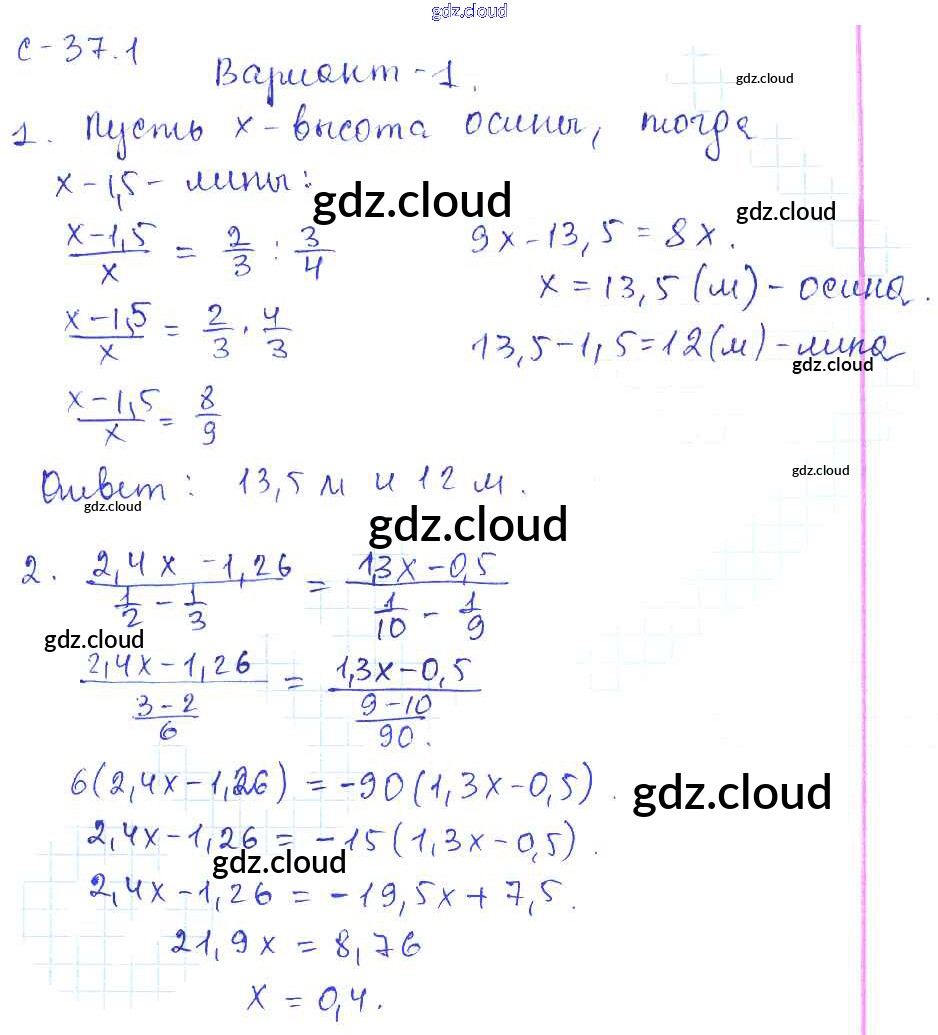 gdz.cloud
С-37.1
Вариант-1.
gdz.cloud
1. Пусть x-высота осины, тогда
x-1,5- липы:
gdz.cloud
gdz.cloud
(x-1,5)/x = 2/3 : 3/4
(x-1,5)/x = 2/3 · 4/3
(x-1,5)/x = 8/9
9x-13,5=8x.
x=13,5(м)-осина.
13,5-1,5=12(м)-липа
gdz.cloud
gdz.cloud
Ответ: 13,5 м и 12 м.
gdz.cloud
gdz.cloud
2. (2,4x-1,26)/(1/2 - 1/3) = (1,3x-0,5)/(1/10 - 1/9)
gdz.cloud
(2,4x-1,26)/((3-2)/6) = (1,3x-0,5)/((9-10)/90).
6(2,4x-1,26) = -90(1,3x-0,5).
gdz.cloud
2,4x-1,26 = -15(1,3x-0,5).
gdz.cloud
2,4x-1,26 = -19,5x+7,5.
21,9x = 8,76
x = 0,4.